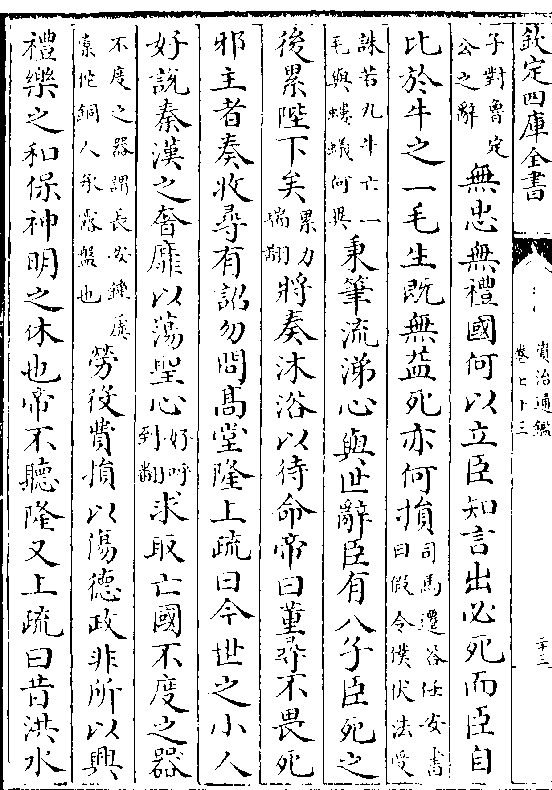 欽定四庫全書
資治通鑑
卷七十三
二十三
子對魯定
公之辭
無忠無禮國何以立臣知言出必死而臣自
比於牛之一毛生既無益死亦何損
司馬遷答任安書
曰假令僕伏法受
誅若九牛亡一
毛與螻蟻何異
秉筆流涕心與世辭臣有八子臣死之
後累陛下矣
累力
瑞翻
將奏沐浴以待命帝曰董尋不畏死
邪主者奏收尋有詔勿問髙堂隆上疏曰今世之小人
好說秦漢之奢靡以蕩聖心
好呼
到翻
求取亡國不度之器
不度之器謂長安鐘虡
槖佗銅人承露盤也
勞役費損以傷德政非所以興
禮樂之和保神明之休也帝不聽隆又上疏曰昔洪水